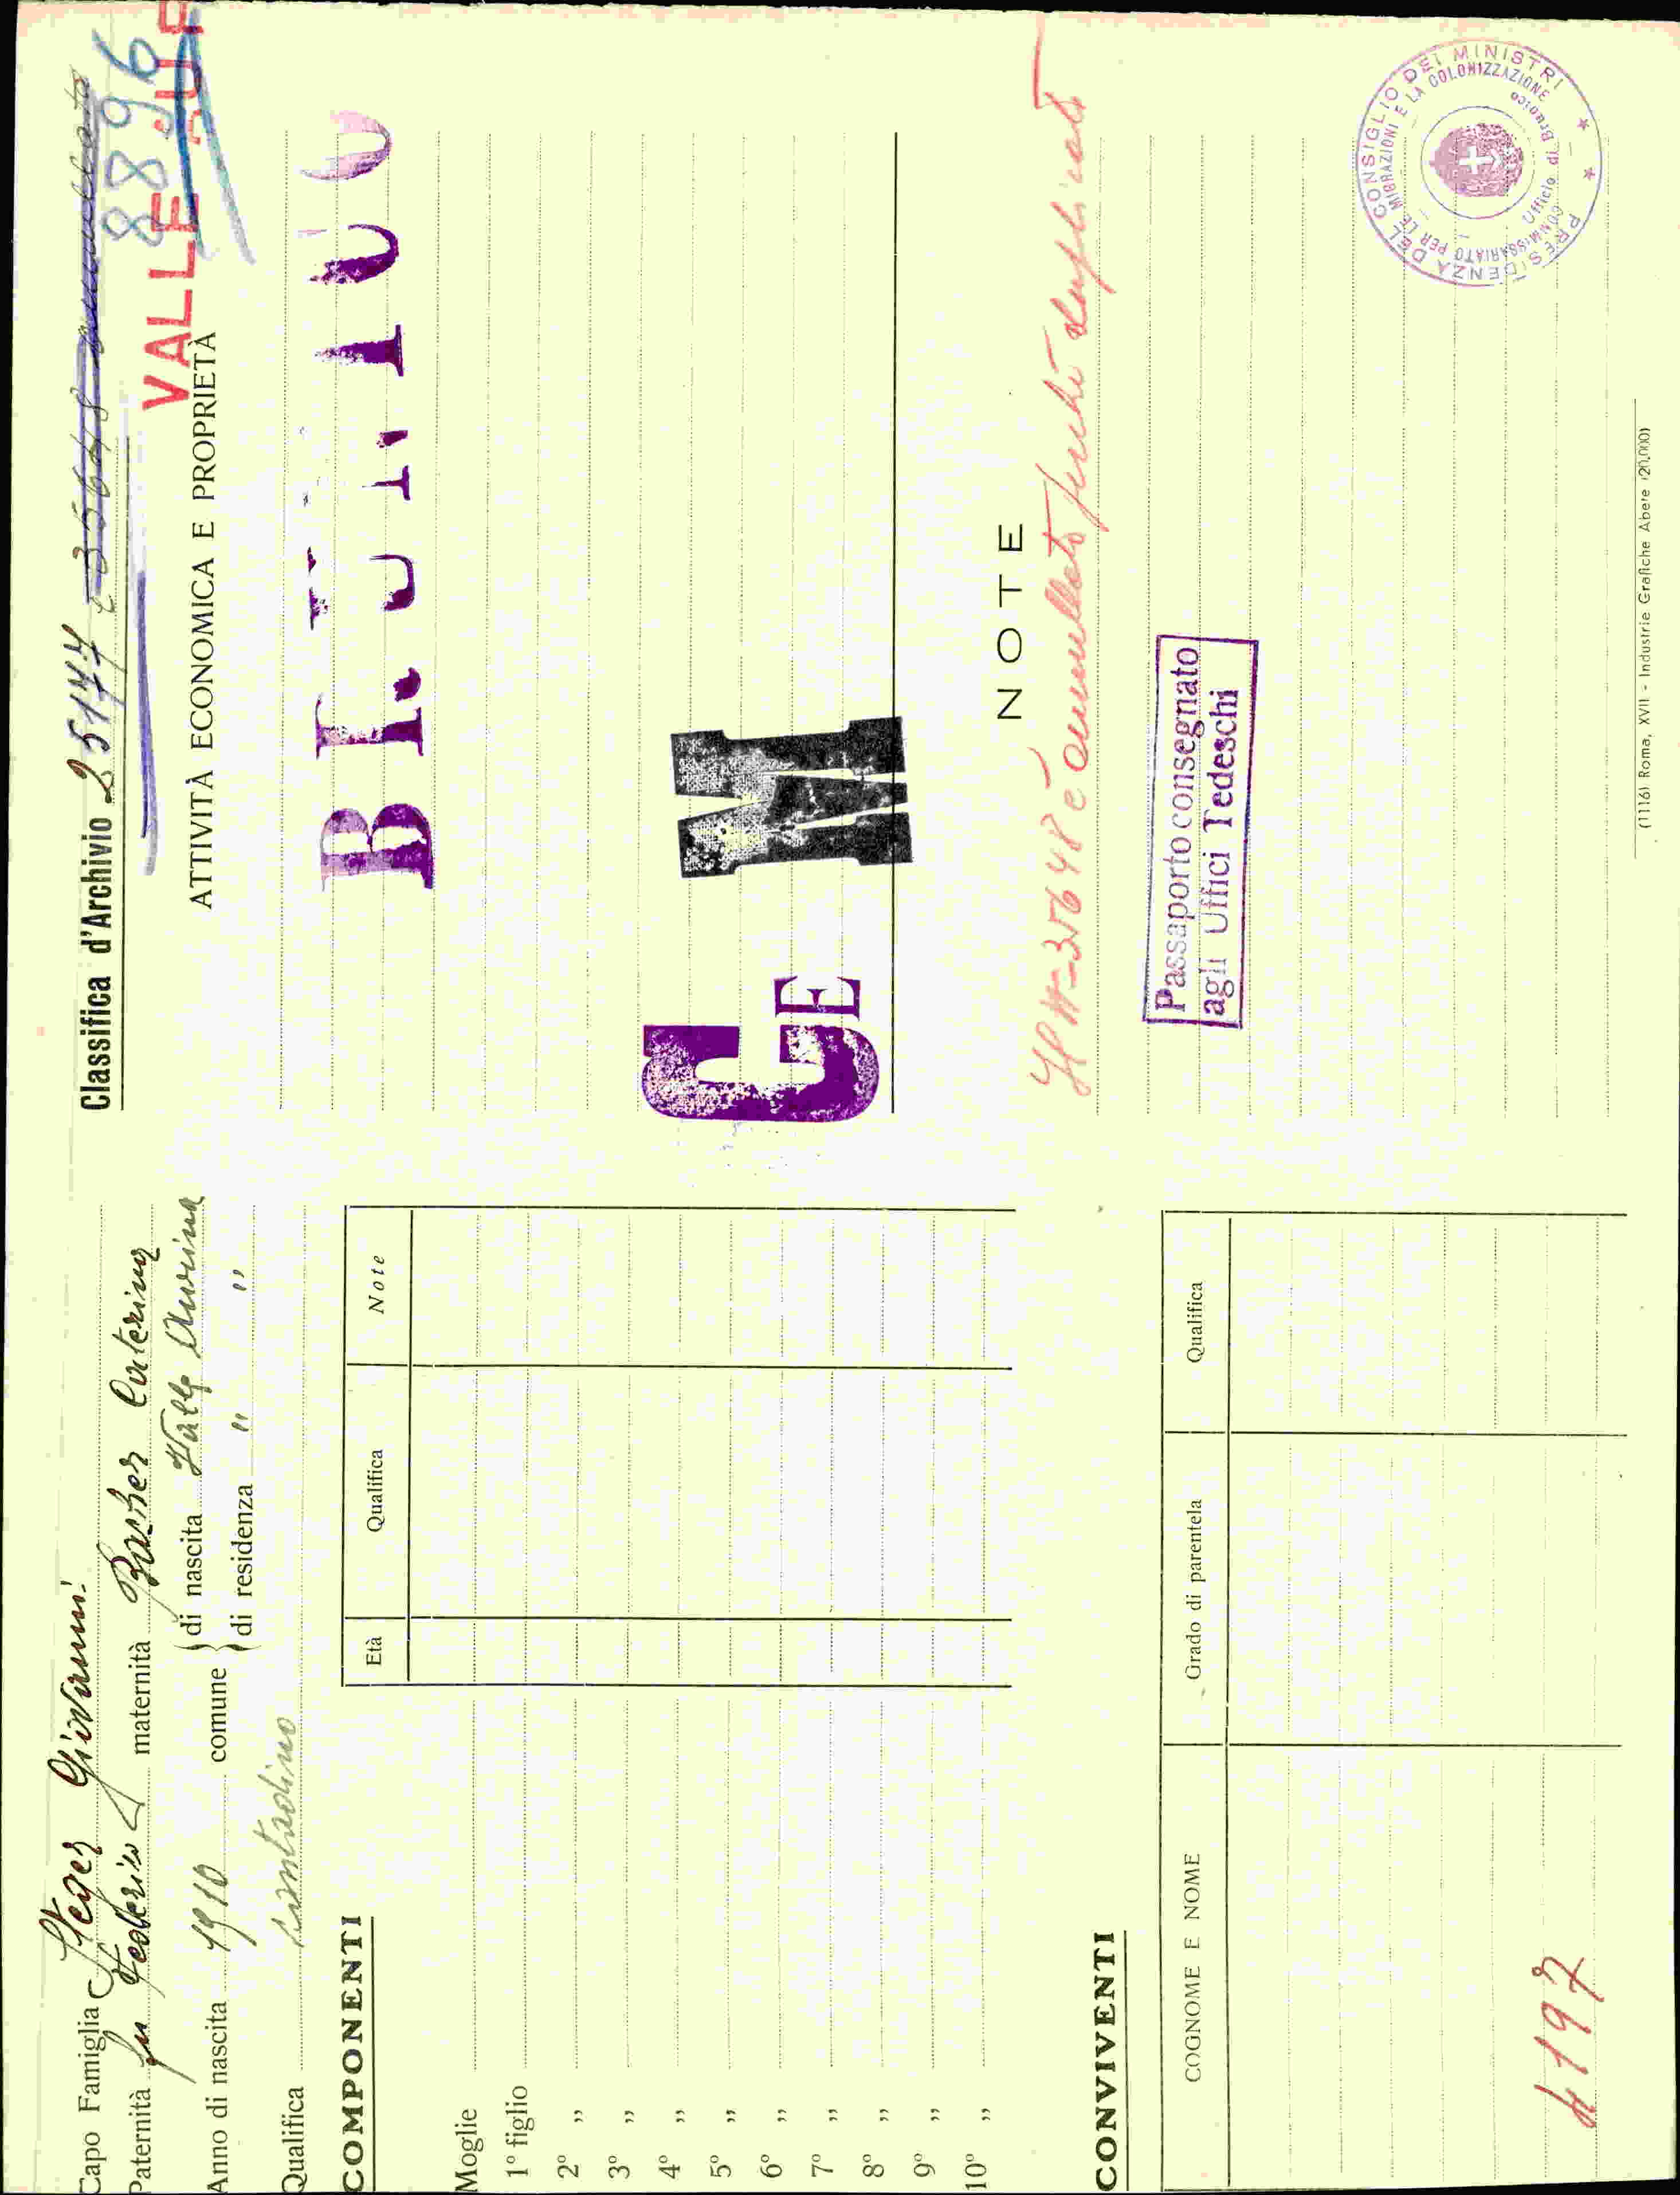 Capo Famiglia Steger Giovanni
Paternità fu Federico maternità Bacher Caterina
Anno di nascita 1910 comune di nascita Valle Aurina
di residenza " "
Qualifica contadino
COMPONENTI
Età Qualifica Note
Moglie
1º figlio
2º ”
3º ”
4º ”
5º ”
6º ”
7º ”
8º ”
9º ”
10º ”
CONVIVENTI
COGNOME E NOME Grado di parentela Qualifica
4197
Classifica d'Archivio 25177 e 35648 annullato
8896
VALLE
ATTIVITÀ ECONOMICA E PROPRIETÀ
GE
M
NOTE
Il Nº 35648 è annullato perché duplicato
Passaporto consegnato
agli Uffici Tedeschi
PRESIDENZA DEL CONSIGLIO DEI MINISTRI
COMMISSARIATO PER LE MIGRAZIONI E LA COLONIZZAZIONE
Ufficio di Brunico
(1116) Roma, XVII - Industrie Grafiche Abete (20.000)